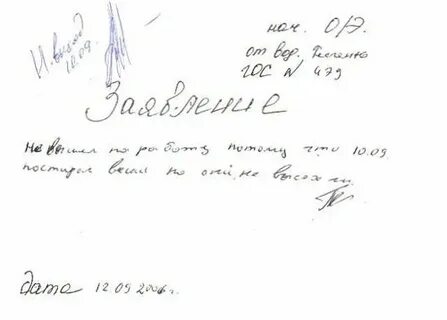 нач. О/Э.
от вод.
ГОС N 479
Н. выход
10.09.
Заявление
не вышел на работу потому что 10.09
постирал вещи но они не высохли.
дата 12 09 2006 г.